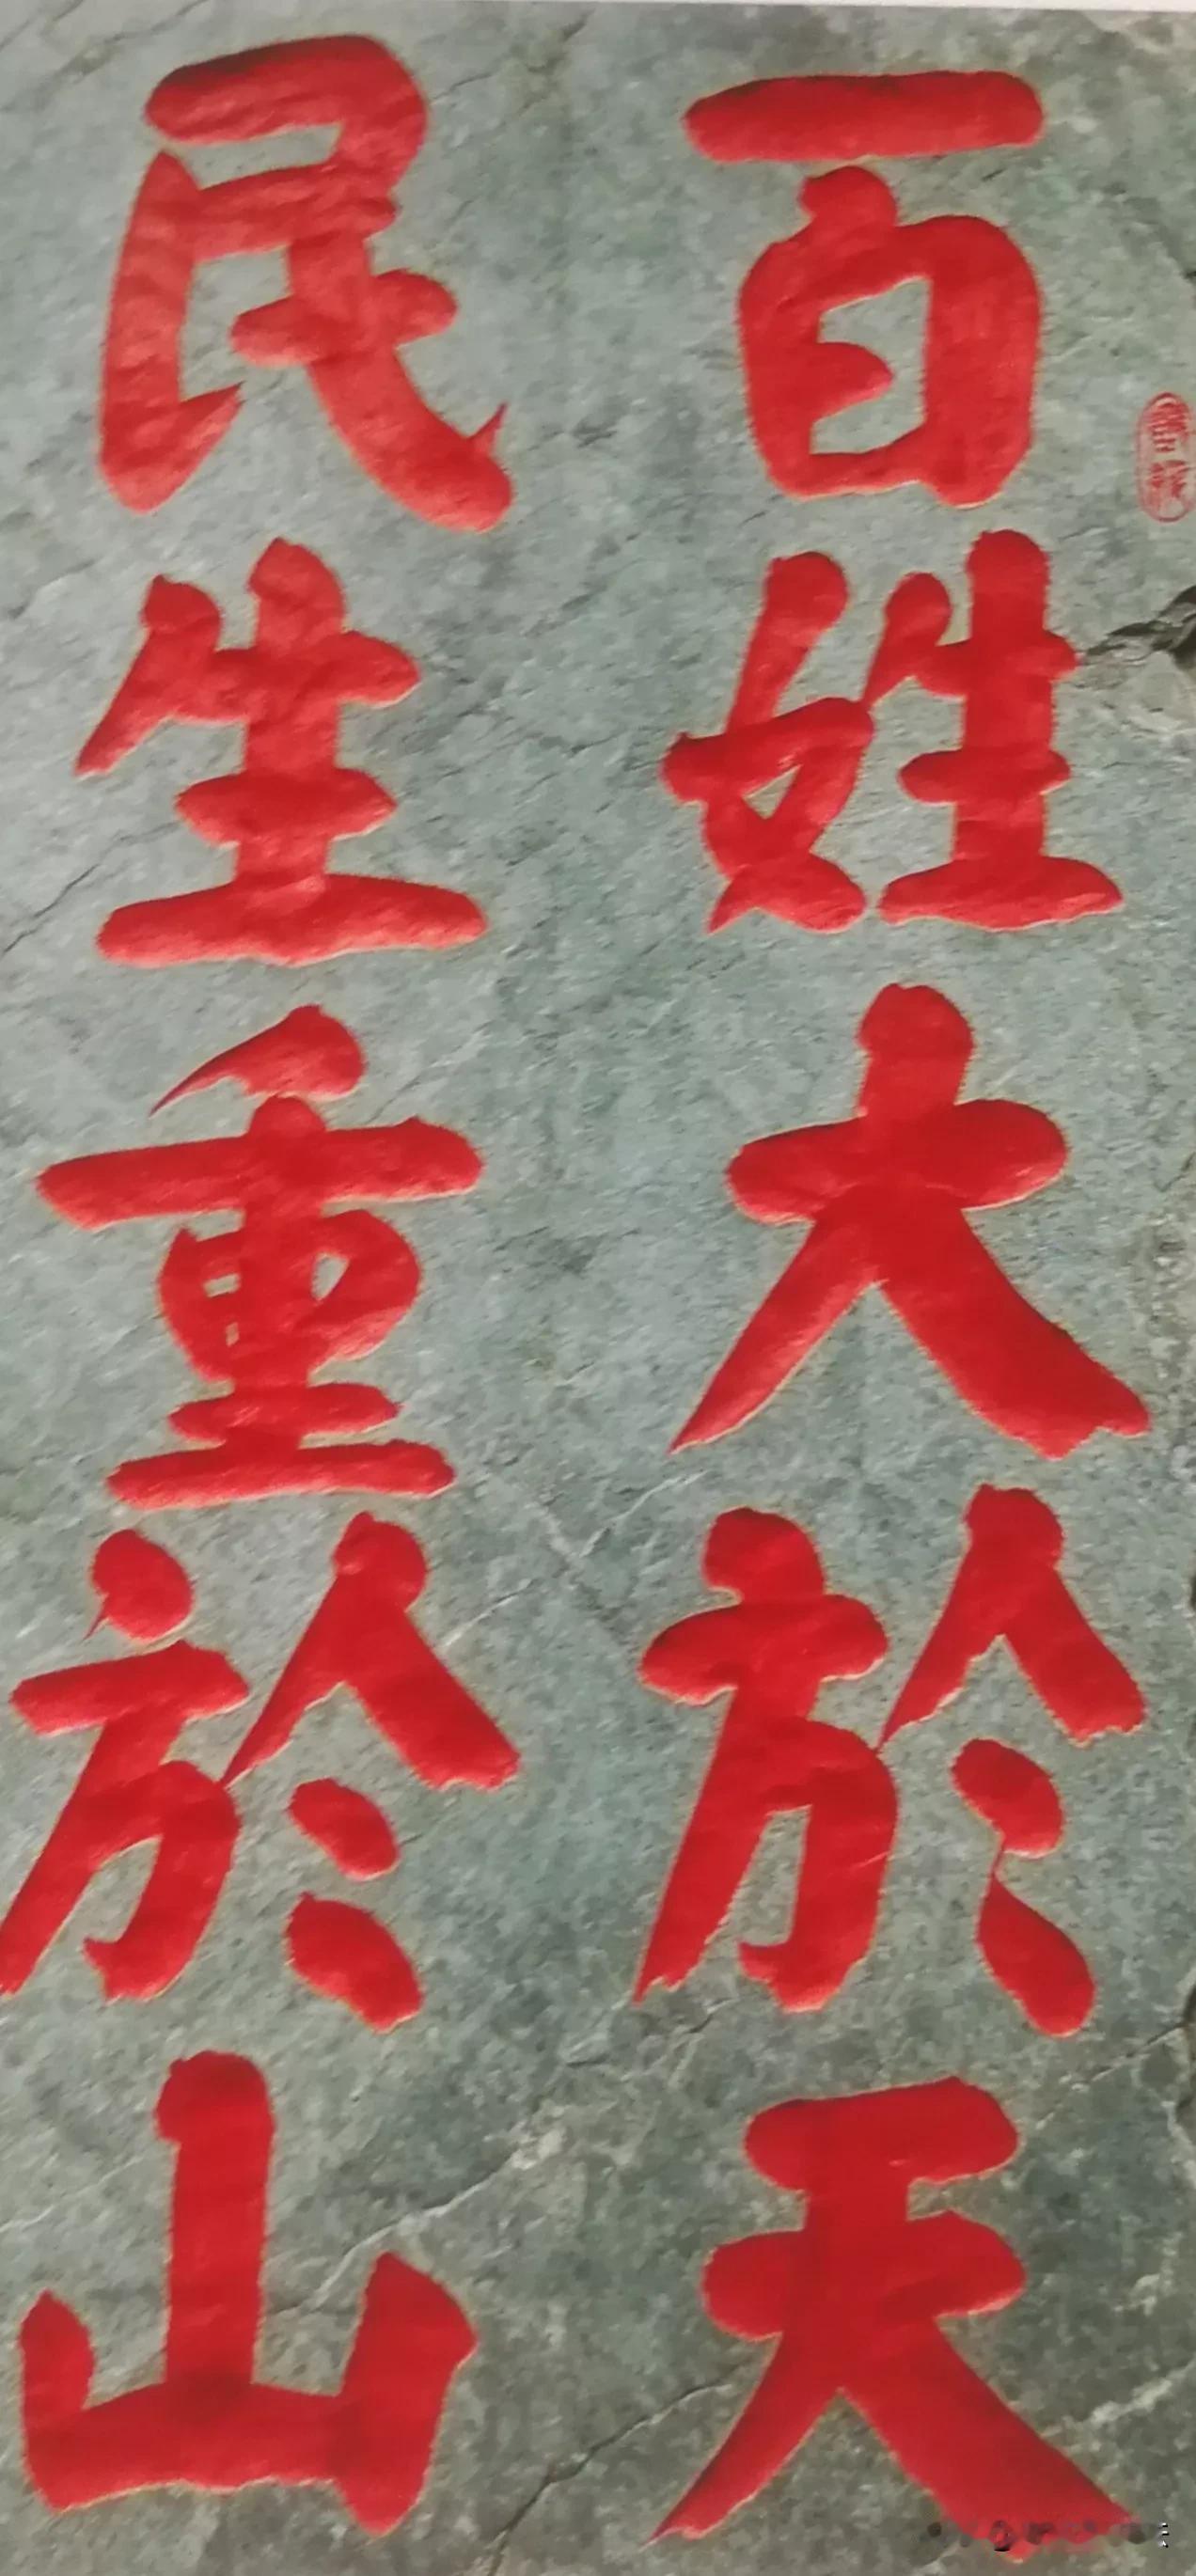 百姓大於天
民生重於山